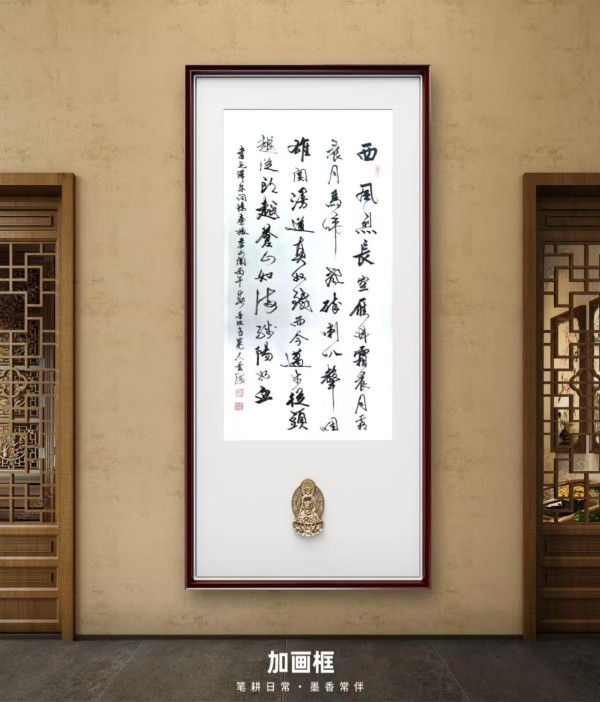 西風烈長空雁叫霜晨月霜
晨月馬蹄聲碎喇叭聲咽
雄関漫道真如鐵而今邁步從頭
越從頭越蒼山如海殘陽如血
書毛澤東詞憶秦娥婁山関丙午
加画框
笔耕日常·墨香常伴